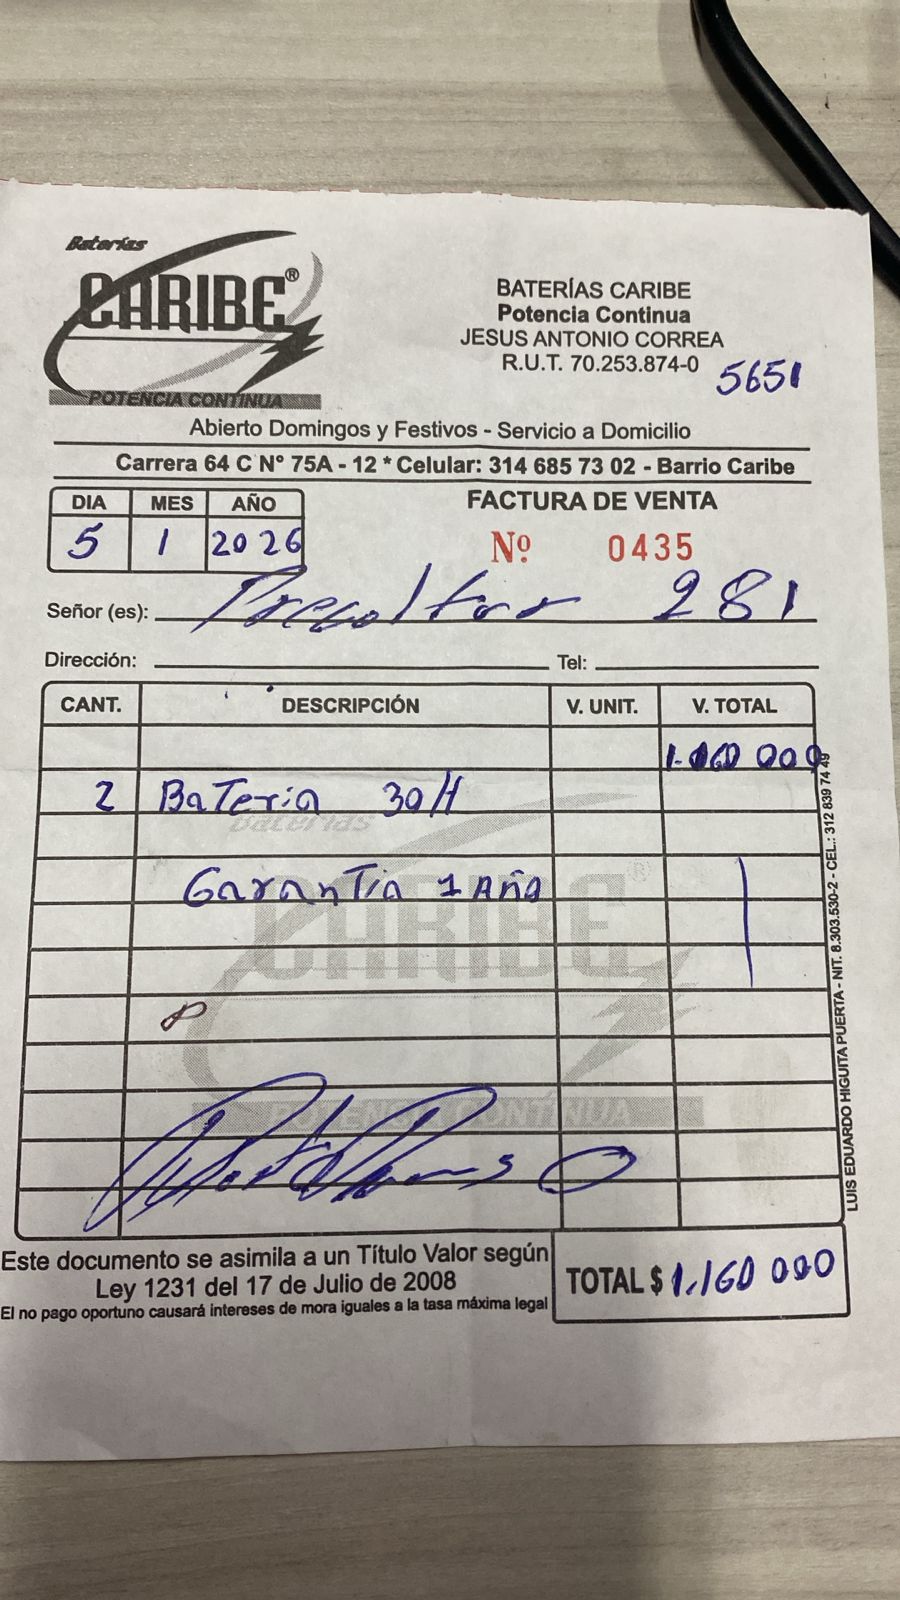 Baterías
CARIBE®
POTENCIA CONTINUA
BATERÍAS CARIBE
Potencia Continua
JESUS ANTONIO CORREA
R.U.T. 70.253.874-0
5651
Abierto Domingos y Festivos - Servicio a Domicilio
Carrera 64 C N° 75A - 12 * Celular: 314 685 73 02 - Barrio Caribe
DIA MES AÑO
5 1 2026
FACTURA DE VENTA
Nº 0435
Señor (es): 281
Dirección: Tel:
CANT. DESCRIPCIÓN V. UNIT. V. TOTAL
1.160 000
2 BaTeria 30H
Baterías
GaranTia 1 Año
CARIBE®
POTENCIA CONTINUA
Este documento se asimila a un Título Valor según
Ley 1231 del 17 de Julio de 2008
El no pago oportuno causará intereses de mora iguales a la tasa máxima legal
TOTAL $ 1.160 000
LUIS EDUARDO HIGUITA PUERTA - NIT. 8.303.530-2 - CEL.: 312 839 74 49